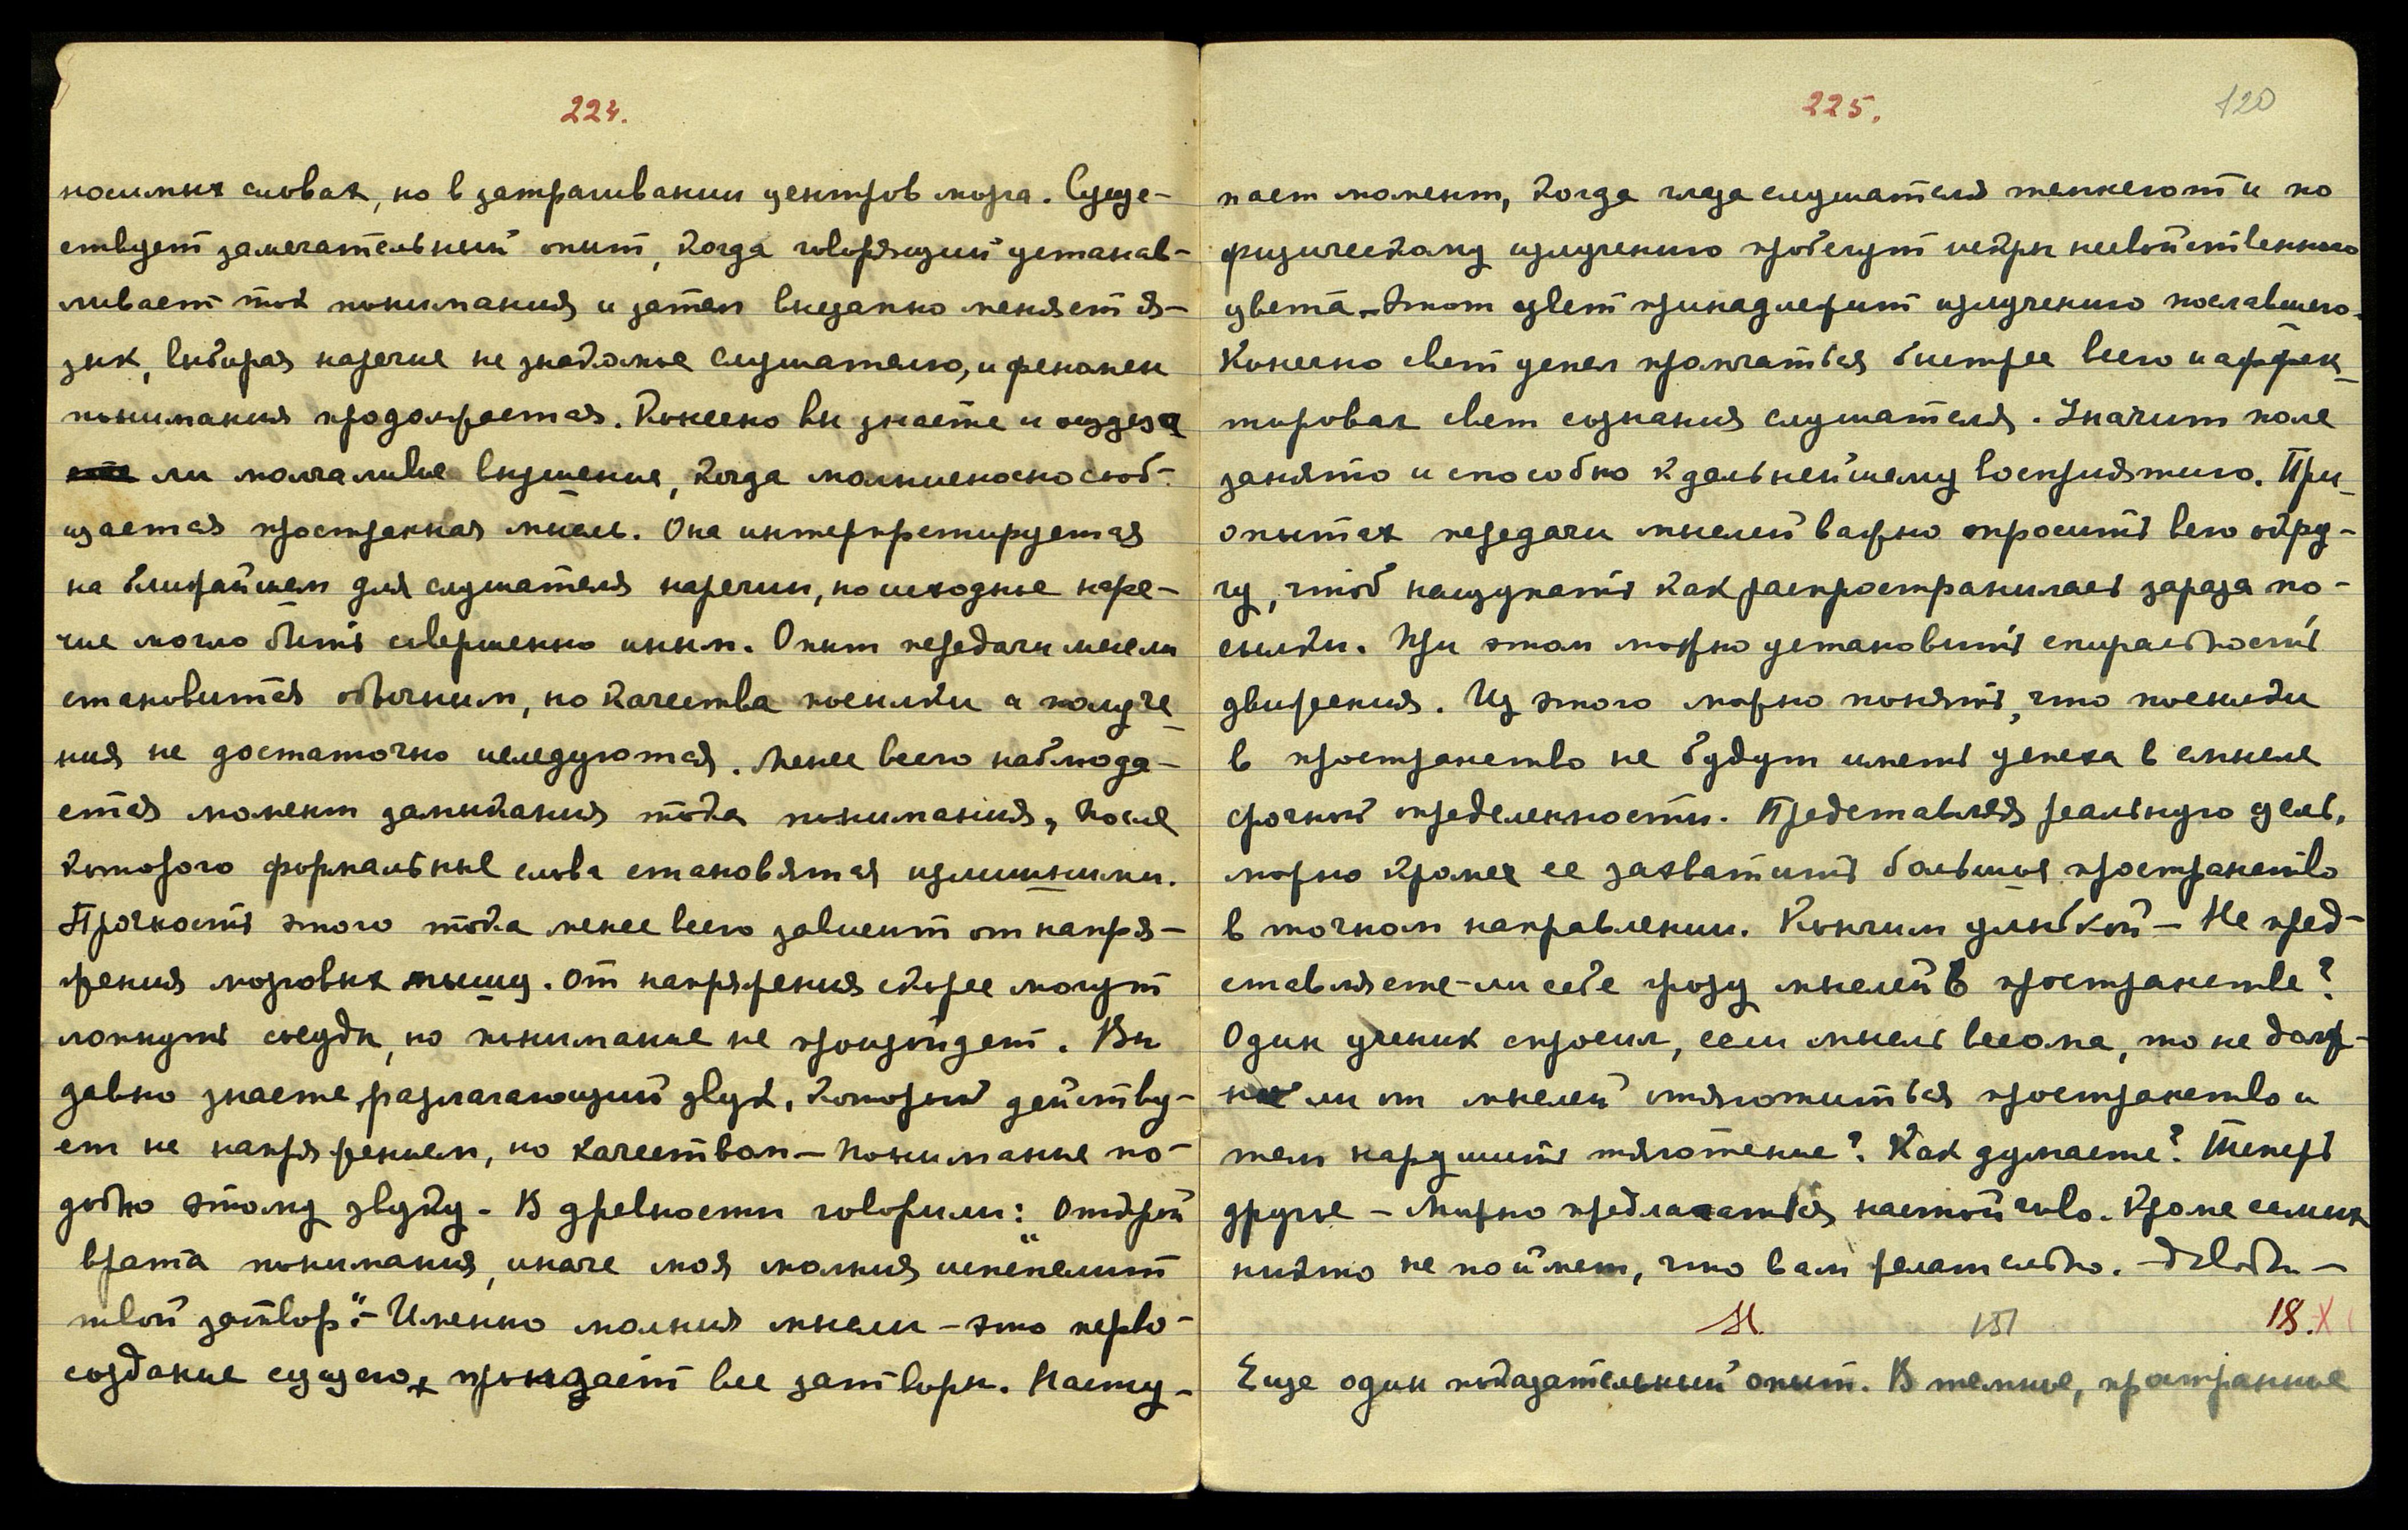 224.
носимых словах, но в затрагивании центров мозга. Суще-
ствует замечательный опыт, когда говорящий устанав-
ливает ток понимания и затем внезапно меняет я-
зык, выбирая наречие не знакомое слушателю, и феномен
понимания продолжается. Конечно вы знаете и
ли молчаливые внушения, когда молниеносно сооб-
щается пространная мысль. Она интерпретируется
на ближайшем для слушателя наречии, но исходные наре-
чие могло быть совершенно иным. Опыт передачи мысли
становится обычным, но качества посылки и получе
ния не достаточно исследуются. Менее всего наблюда-
ется момент замыкания тока понимания, после
которого формальные слова становятся излишними.
Прочность этого тока менее всего зависит от напря-
жения мозговых мышц. От напряжения скорее могут
лопнуть сосуды, но понимание не произойдет. Вы
давно знаете разлагающий звук, который действу-
ет не напряжением, но качеством — понимание по-
добно этому звуку - В древности говорили: Открой
врата понимания, иначе моя молния испепелит
твой затвор". - Именно молния мысли - это перво-
создание сущего, пронзает все затворы. Насту-
225.
120
пает момент, когда глаза слушателя темнеют и по
физическому излучению пробегут искры несвойственного
цвета. - Этот цвет принадлежит излучению пославшего.
Конечно свет успел промчаться быстрее всего и аффек-
тировал свет сознания слушателя. Значит поле
занято и способно к дальнейшему восприятию. При
опытах передачи мыслей важно опросить всю окру-
гу, чтоб нащупать как распространилась зараза по-
сылки. При этом можно установить спиральность
движения. Из этого можно понять, что посылки
в пространство не будут иметь успеха в смысле
срочной определенности. Представляя реальную цель,
можно кроме ее захватить большия пространство
в точном направлении. Кончим улыбкой - Не пред-
ставляете-ли себе грозу мыслей в пространстве?
Один ученик спросил, если мысль весома, то не долж-
но ли от мыслей отяготиться пространство и
тем нарушить тяготение? Как думаете? Теперь
другое - Мирно предлагаться настойчиво. Кроме самих
никто не поймет, что вам желательно. -
M.
151
18. X
Еще один показательный опыт. В темные, пространные